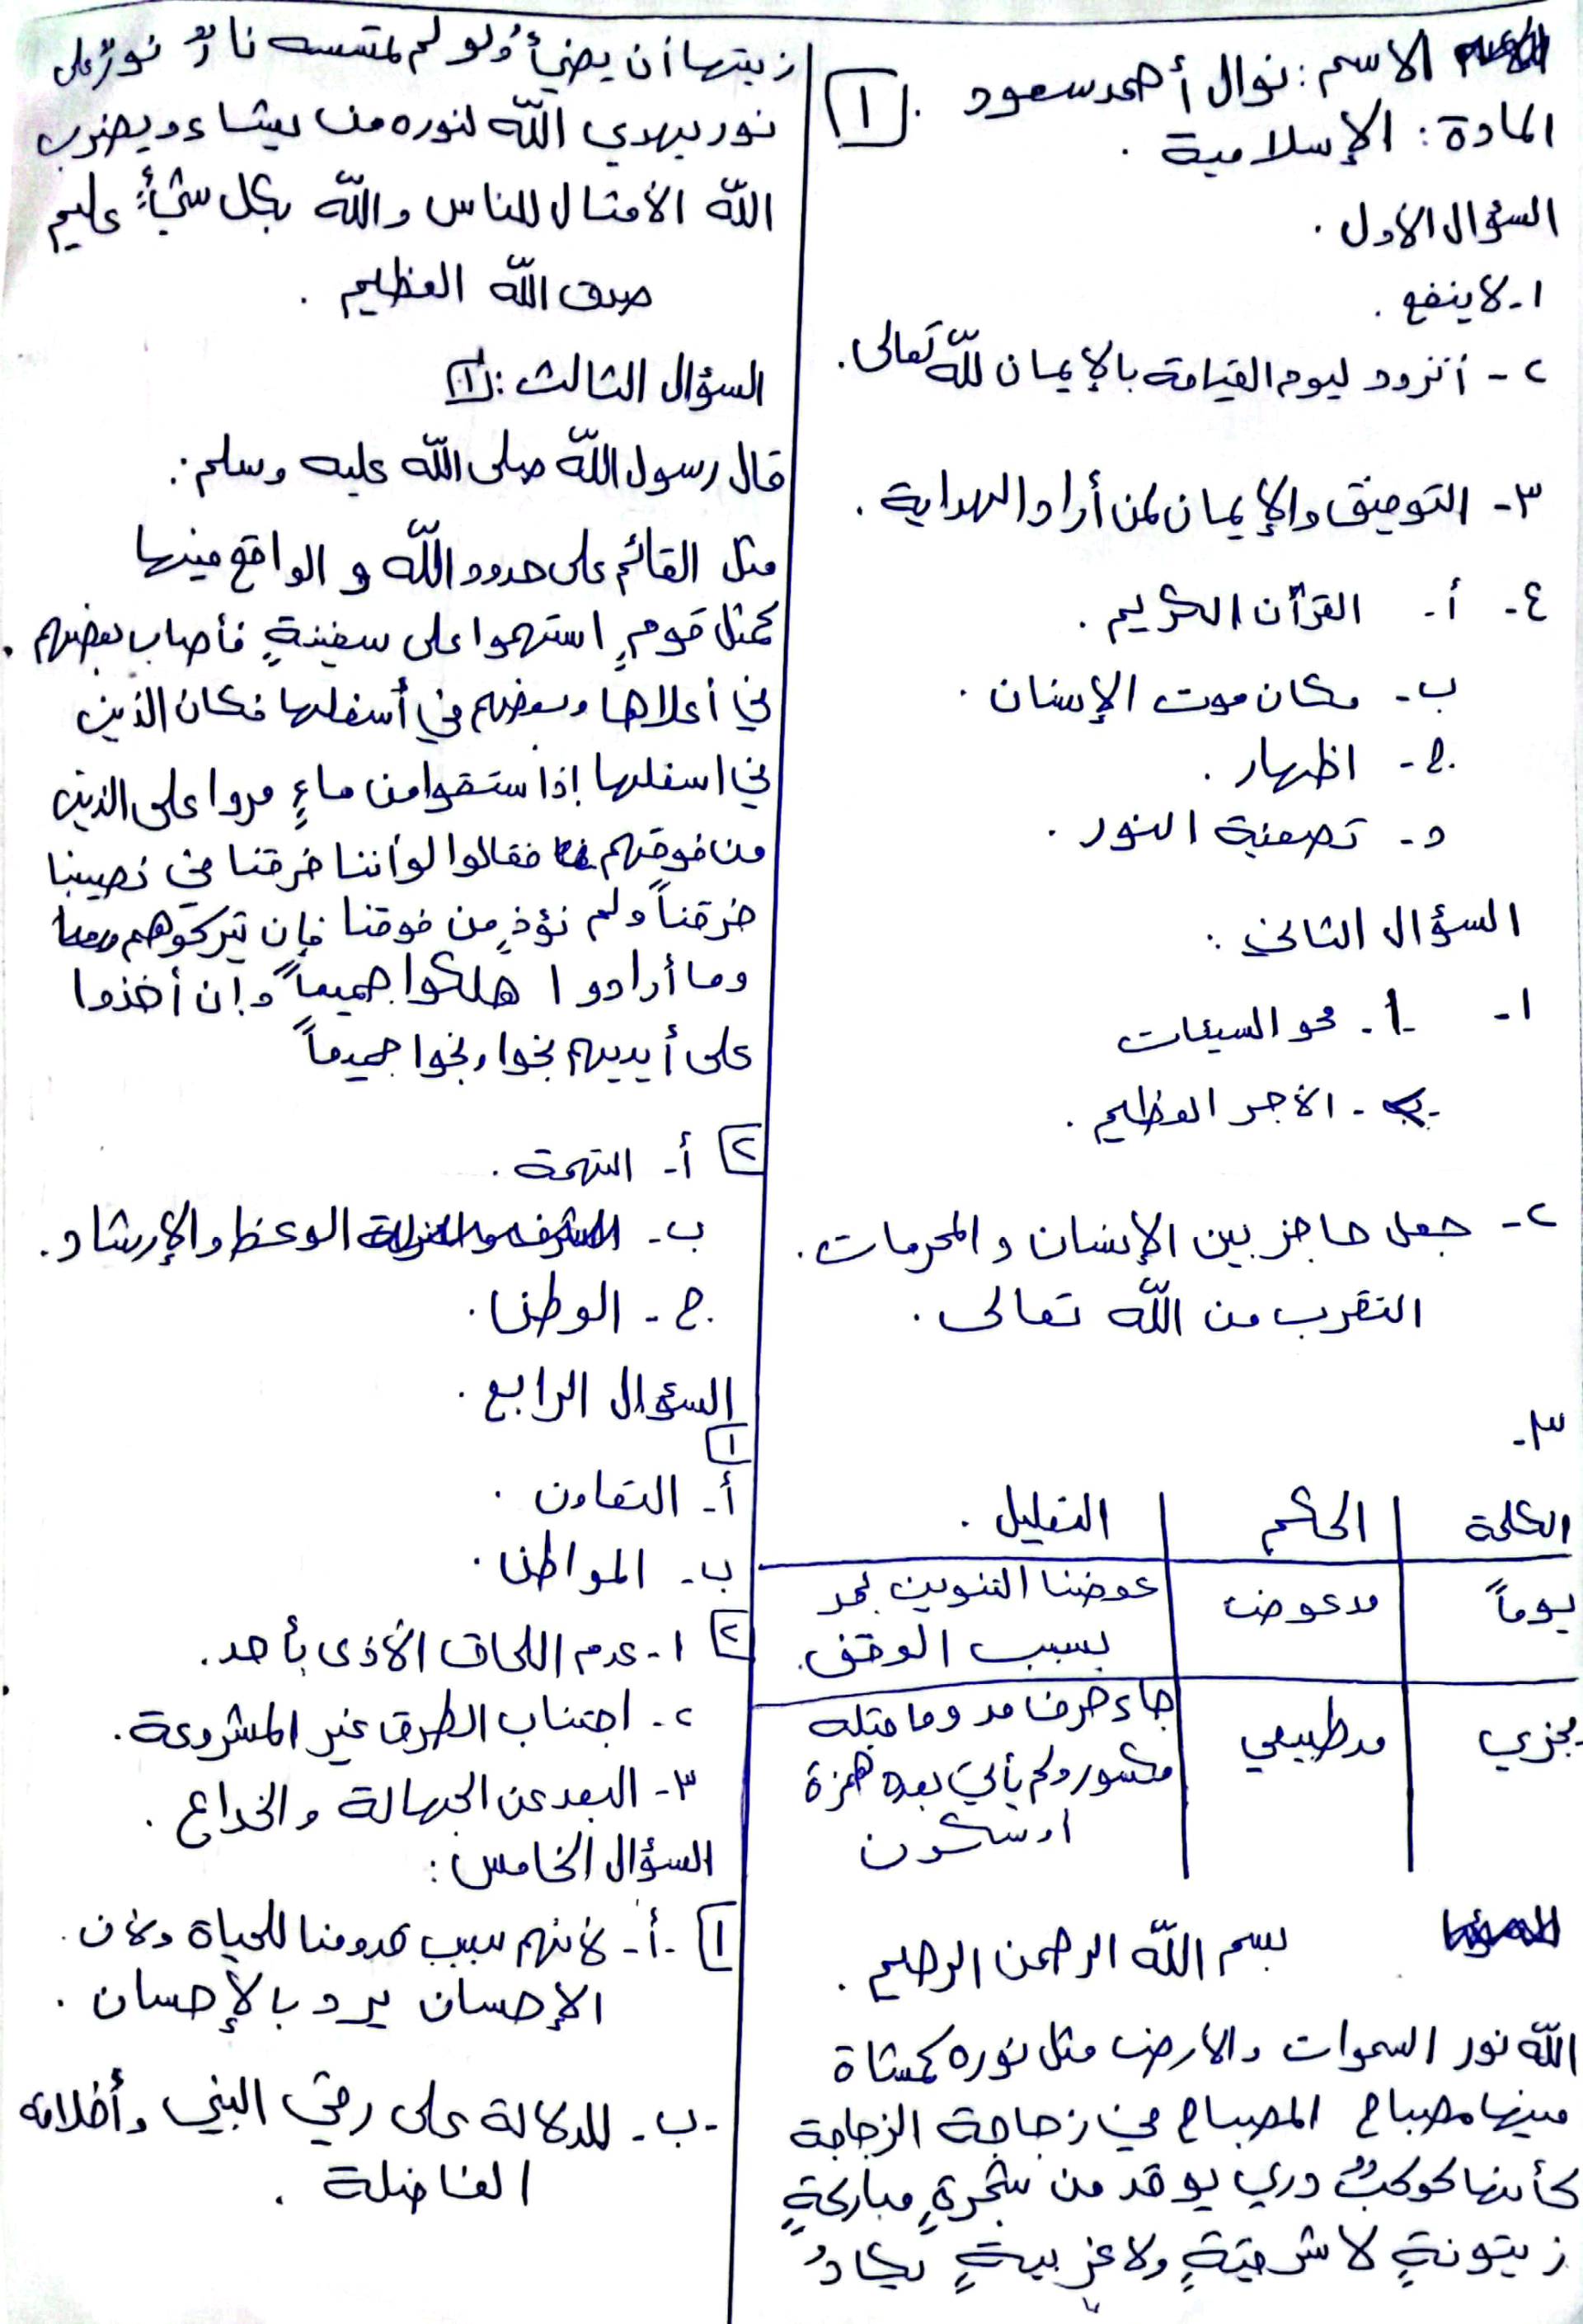 الاسم : نوال أحمد سعود .
١
المادة : الإسلامية .
السؤال الأول .
١- لا ينفع .
٢- أتزود ليوم القيامة بالإيمان للّه تعالى .
٣- التوفيق والإيمان لمن أراد الهداية .
٤- أ- القرآن الكريم .
ب- مكان موت الإنسان .
ج- اظهار .
د- تصفية النور .
السؤال الثاني :
١- ١- محو السيئات
ب- الأجر العظيم .
٢- جعل حاجز بين الإنسان والمحرمات .
التقرب من اللّه تعالى .
٣-
الكلمة | الحكم | التعليل .
يوماً | مد عوض | عوضنا التنوين بمد
بسبب الوقف .
يجزي | مد طبيعي | جاء حرف مد وما قبله
مكسور ولم يأتي بعده همزة
او سكون
بسم اللّه الرحمن الرحيم .
اللّه نور السموات والارض مثل نوره كمشاة
فيها مصباح المصباح في زجاجة الزجاجة
كأنها كوكبٌ دري يوقد من شجرةٍ مباركةٍ
زيتونةٍ لا شرقيةٍ ولا غربيةٍ يكادُ
زيتها أن يضيأُ ولو لم تمتسسه نارٌ نورٌ على
نور يهدي اللّه لنوره من يشاء ويضرب
اللّه الأمثال للناس واللّه بكل شيأٍ عليم
صدق اللّه العظيم .
السؤال الثالث : ١
قال رسول اللّه صلى اللّه عليه وسلم :
مثل القائم على حدود اللّه و الواقع فيها
كمثل قومٍ استهموا على سفينةٍ فأصاب بعضهم .
في أعلاها وبعضهم في أسفلها فكان الذين
في اسفلها إذا ستقوا من ماءٍ مروا على الذين
من فوقهم فقالوا لو أننا خرقنا في نصيبنا
خرقناً ولم نؤذِ من فوقنا فإن تيركوهم
وما أرادوا هلكوا جميعاً وإن أخذوا
على أيديهم نجوا ونجوا جميعاً
٢ أ- التهمة .
ب- الوعظ والإرشاد .
ج- الوطن .
السؤال الرابع .
١
أ- التعاون .
ب- المواطن .
٢ ١- عدم اللحاق الأذى بأحد .
٢- اجتناب الطرق غير المشروعة .
٣- البعد عن الجهالة والخداع .
السؤال الخامس :
١ -أ- لأنهم سبب قدومنا للحياة ولأن .
الإحسان يرد بالإحسان .
-ب- للدلالة على رقي النبي وأخلاقه
الفاضلة .